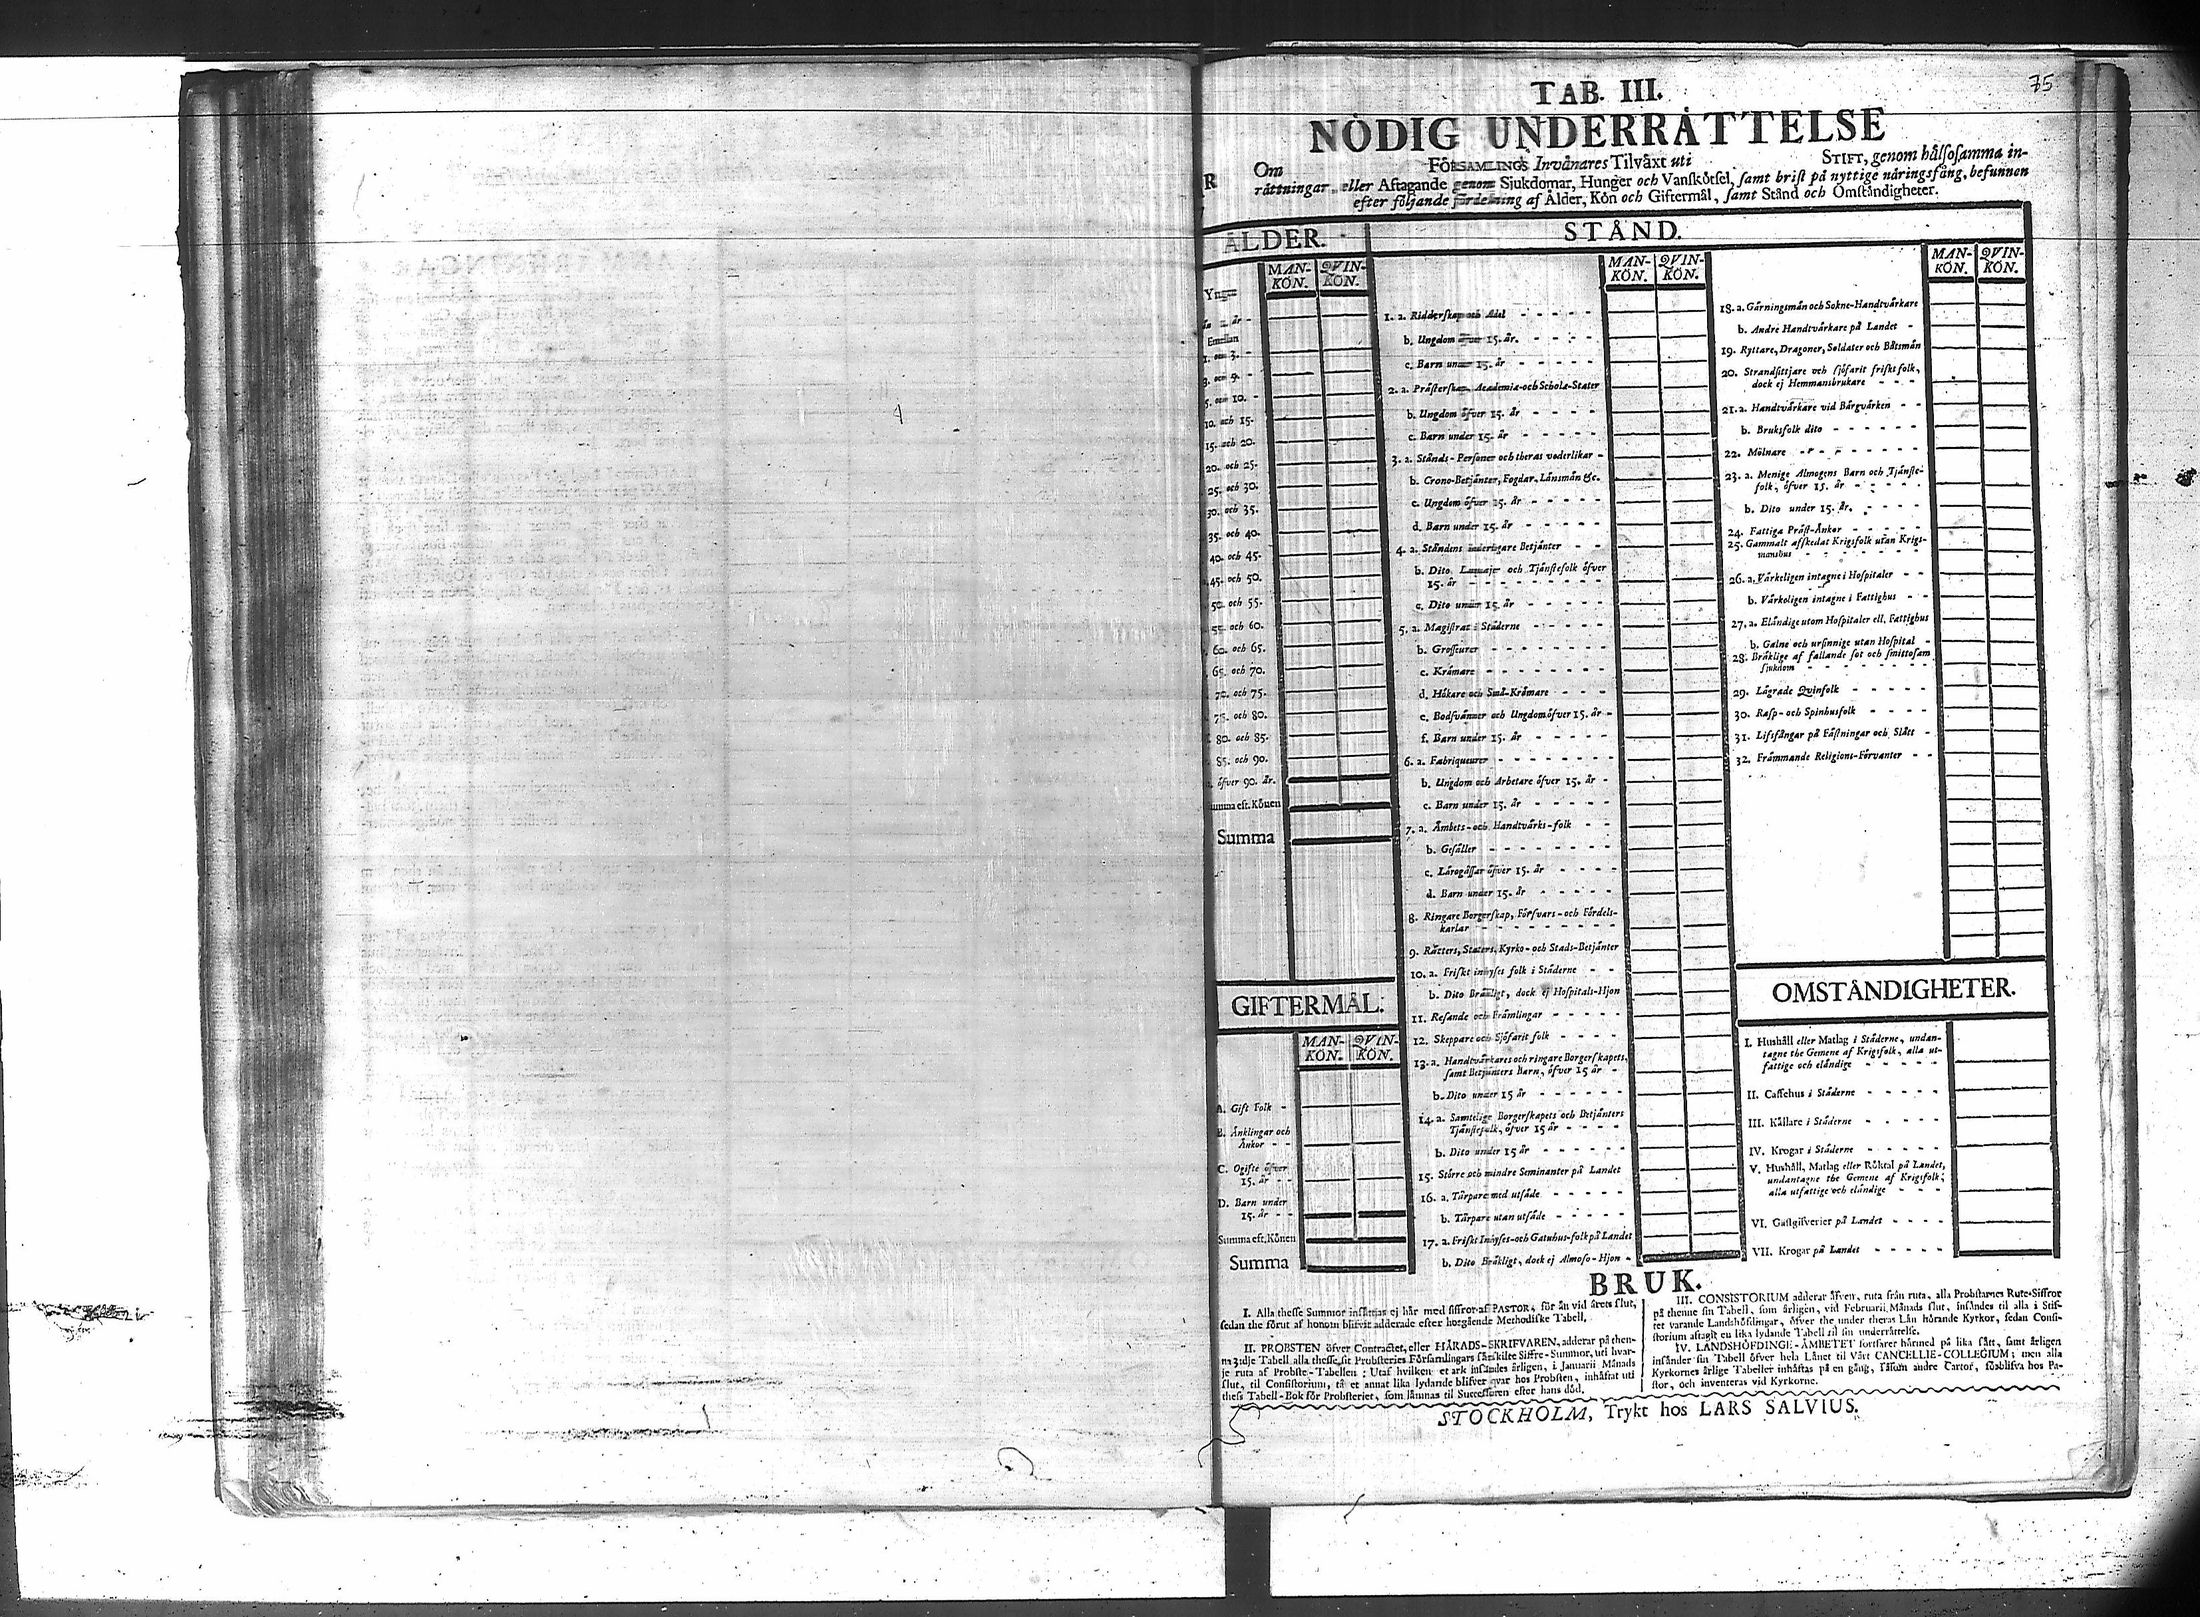 75
TAB. III.
NÖDIG UNDERRÄTTELSE
Om FÖRSAMLINGS Invånares Tilväxt uti STIFT, genom hälsosamma in-
rättningar, eller Aftagande genom Sjukdomar, Hunger och Vanskötsel, samt brist på nyttige näringsfång, befunnen
efter följande fördelning af Ålder, Kön och Giftermål, samt Stånd och Omständigheter.
R
ÅLDER.
MAN-KÖN. QVIN-KÖN.
Yngre
än 1. år -
Emellan
1. och 3. -
3. och 5. -
5. och 10. -
10. och 15.
15. och 20.
20. och 25.
25. och 30.
30. och 35.
35. och 40.
40. och 45.
45. och 50.
50. och 55.
55. och 60.
60. och 65.
65. och 70.
70. och 75.
75. och 80.
80. och 85.
85. och 90.
öfver 90. år.
Summa eft. Könen
Summa
GIFTERMÅL.
MAN-KÖN. QVIN-KÖN.
A. Gift Folk -
B. Änklingar och
Änkor - -
C. Ogifte öfver
15. år - -
D. Barn under
15. år - -
Summa eft. Könen
Summa
STÅND.
MAN-KÖN. QVIN-KÖN.
1. a. Ridderskap och Adel
b. Ungdom öfver 15. år.
c. Barn under 15. år
2. a. Prästerskap, Academiæ-och Scholæ-Stater
b. Ungdom öfver 15. år
c. Barn under 15. år
3. a. Stånds-Personer och theras vederlikar -
b. Crono-Betjänter, Fogdar, Länsmän &c.
c. Ungdom öfver 15. år
d. Barn under 15. år
4. a. Ståndens Betjänter
b. Dito och Tjänstefolk öfver
15. år
c. Dito under 15. år
5. a. Magistrat i Städerne
b. Grosseurer
c. Krämare
d. Hökare och Små-Krämare
e. Bodsvänner och Ungdom öfver 15. år -
f. Barn under 15. år
6. a. Fabriqueurer
b. Ungdom och Arbetare öfver 15. år -
c. Barn under 15. år
7. a. Ämbets-och Handtvärks-folk
b. Gesäller
c. Lärogåssar öfver 15. år
d. Barn under 15. år
8. Ringare Borgerskap, Försvars-och Fördels-
karlar
9. Rätters, Staters, Kyrko-och Stads-Betjänter
10. a. Friskt inhyses folk i Städerne
b. Dito Bräkligt, dock ej Hospitals-Hjon
11. Resande och Främlingar
12. Skeppare och Sjöfarit folk
13. a. Handtvärkares och ringare Borgerskapets,
samt Betjänters Barn, öfver 15 år -
b. Dito under 15 år
14. a. Samtelige Borgerskapets och Betjänters
Tjänstefolk, öfver 15 år
b. Dito under 15 år
15. Större och mindre Seminanter på Landet
16. a. Tårpare med utsäde
b. Tårpare utan utsäde
17. a. Friskt Inhyses-och Gatuhus-folk på Landet
b. Dito Bräkligt, dock ej Almoso-Hjon -
MAN-KÖN. QVIN-KÖN.
18. a. Gärningsmän och Sokne-Handtvärkare
b. Andre Handtvärkare på Landet -
19. Ryttare, Dragoner, Soldater och Båtsmän
20. Strandsittjare och sjöfarit friskt folk,
dock ej Hemmansbrukare
21. a. Handtvärkare vid Bärgvärken
b. Bruksfolk dito
22. Mölnare
23. a. Menige Almogens Barn och Tjänste-
folk, öfver 15. år
b. Dito under 15. år.
24. Fattiga Präst-Änkor
25. Gammalt afskedat Krigsfolk utan Krigs-
manshus
26. a. Värkeligen intagne i Hospitaler
b. Värkeligen intagne i Fattighus
27. a. Eländige utom Hospitaler ell. Fattighus
b. Galne och ursinnige utan Hospital -
28. Bräklige af fallande sot och smittosam
sjukdom
29. Lägrade Qvinfolk
30. Rasp-och Spinhusfolk
31. Lifsfångar på Fästningar och Slått -
32. Främmande Religions-Förvanter
OMSTÄNDIGHETER.
I. Hushåll eller Matlag i Städerne, undan-
tagne the Gemene af Krigsfolk, alla ut-
fattige och eländige
II. Caffehus i Städerne
III. Källare i Städerne
IV. Krogar i Städerne
V. Hushåll, Matlag eller Röktal på Landet,
undantagne the Gemene af Krigsfolk;
alla utfattige och eländige
VI. Gästgifverier på Landet
VII. Krogar på Landet
BRUK.
I. Alla thesse Summor insättjas ej här med siffror af PASTOR, för än vid årets slut,
sedan the förut af honom blifvit adderade efter horgående Methodiske Tabell.
II. PROBSTEN öfver Contractet, eller HÄRADS-SKRIFVAREN, adderar på then-
na 3:dje Tabell alla thesse, sit Probsteries Församlingars särskilte Siffre-Summor, uti hvar-
je ruta af Probste-Tabellen: Utaf hvilken et ark insändes årligen, i Januarii Månads
slut, til Consistorium, tå et annat lika lydande blifver qvar hos Probsten, inhäftat uti
thess Tabell-Bok för Probsteriet, som lämnas til Successoren efter hans död.
III. CONSISTORIUM adderar äfven, ruta från ruta, alla Probstarnes Rute-Siffror
på thenne sin Tabell, som årligen, vid Februarii Månads slut, insändes til alla i Stif-
tet varande Landshöfdingar, öfver the under theras Län hörande Kyrkor, sedan Consi-
storium aftagit en lika lydande Tabell til sin underrättelse.
IV. LANDSHÖFDINGE-ÄMBETET fortfarer härmed på lika sätt, samt årligen
insänder sin Tabell öfver hela Länet til Vårt CANCELLIE-COLLEGIUM; men alla
Kyrkornes årlige Tabeller inhäftas på en gång, såsom andre Cartor, förblifva hos Pa-
stor, och inventeras vid Kyrkorne.
STOCKHOLM, Trykt hos LARS SALVIUS.